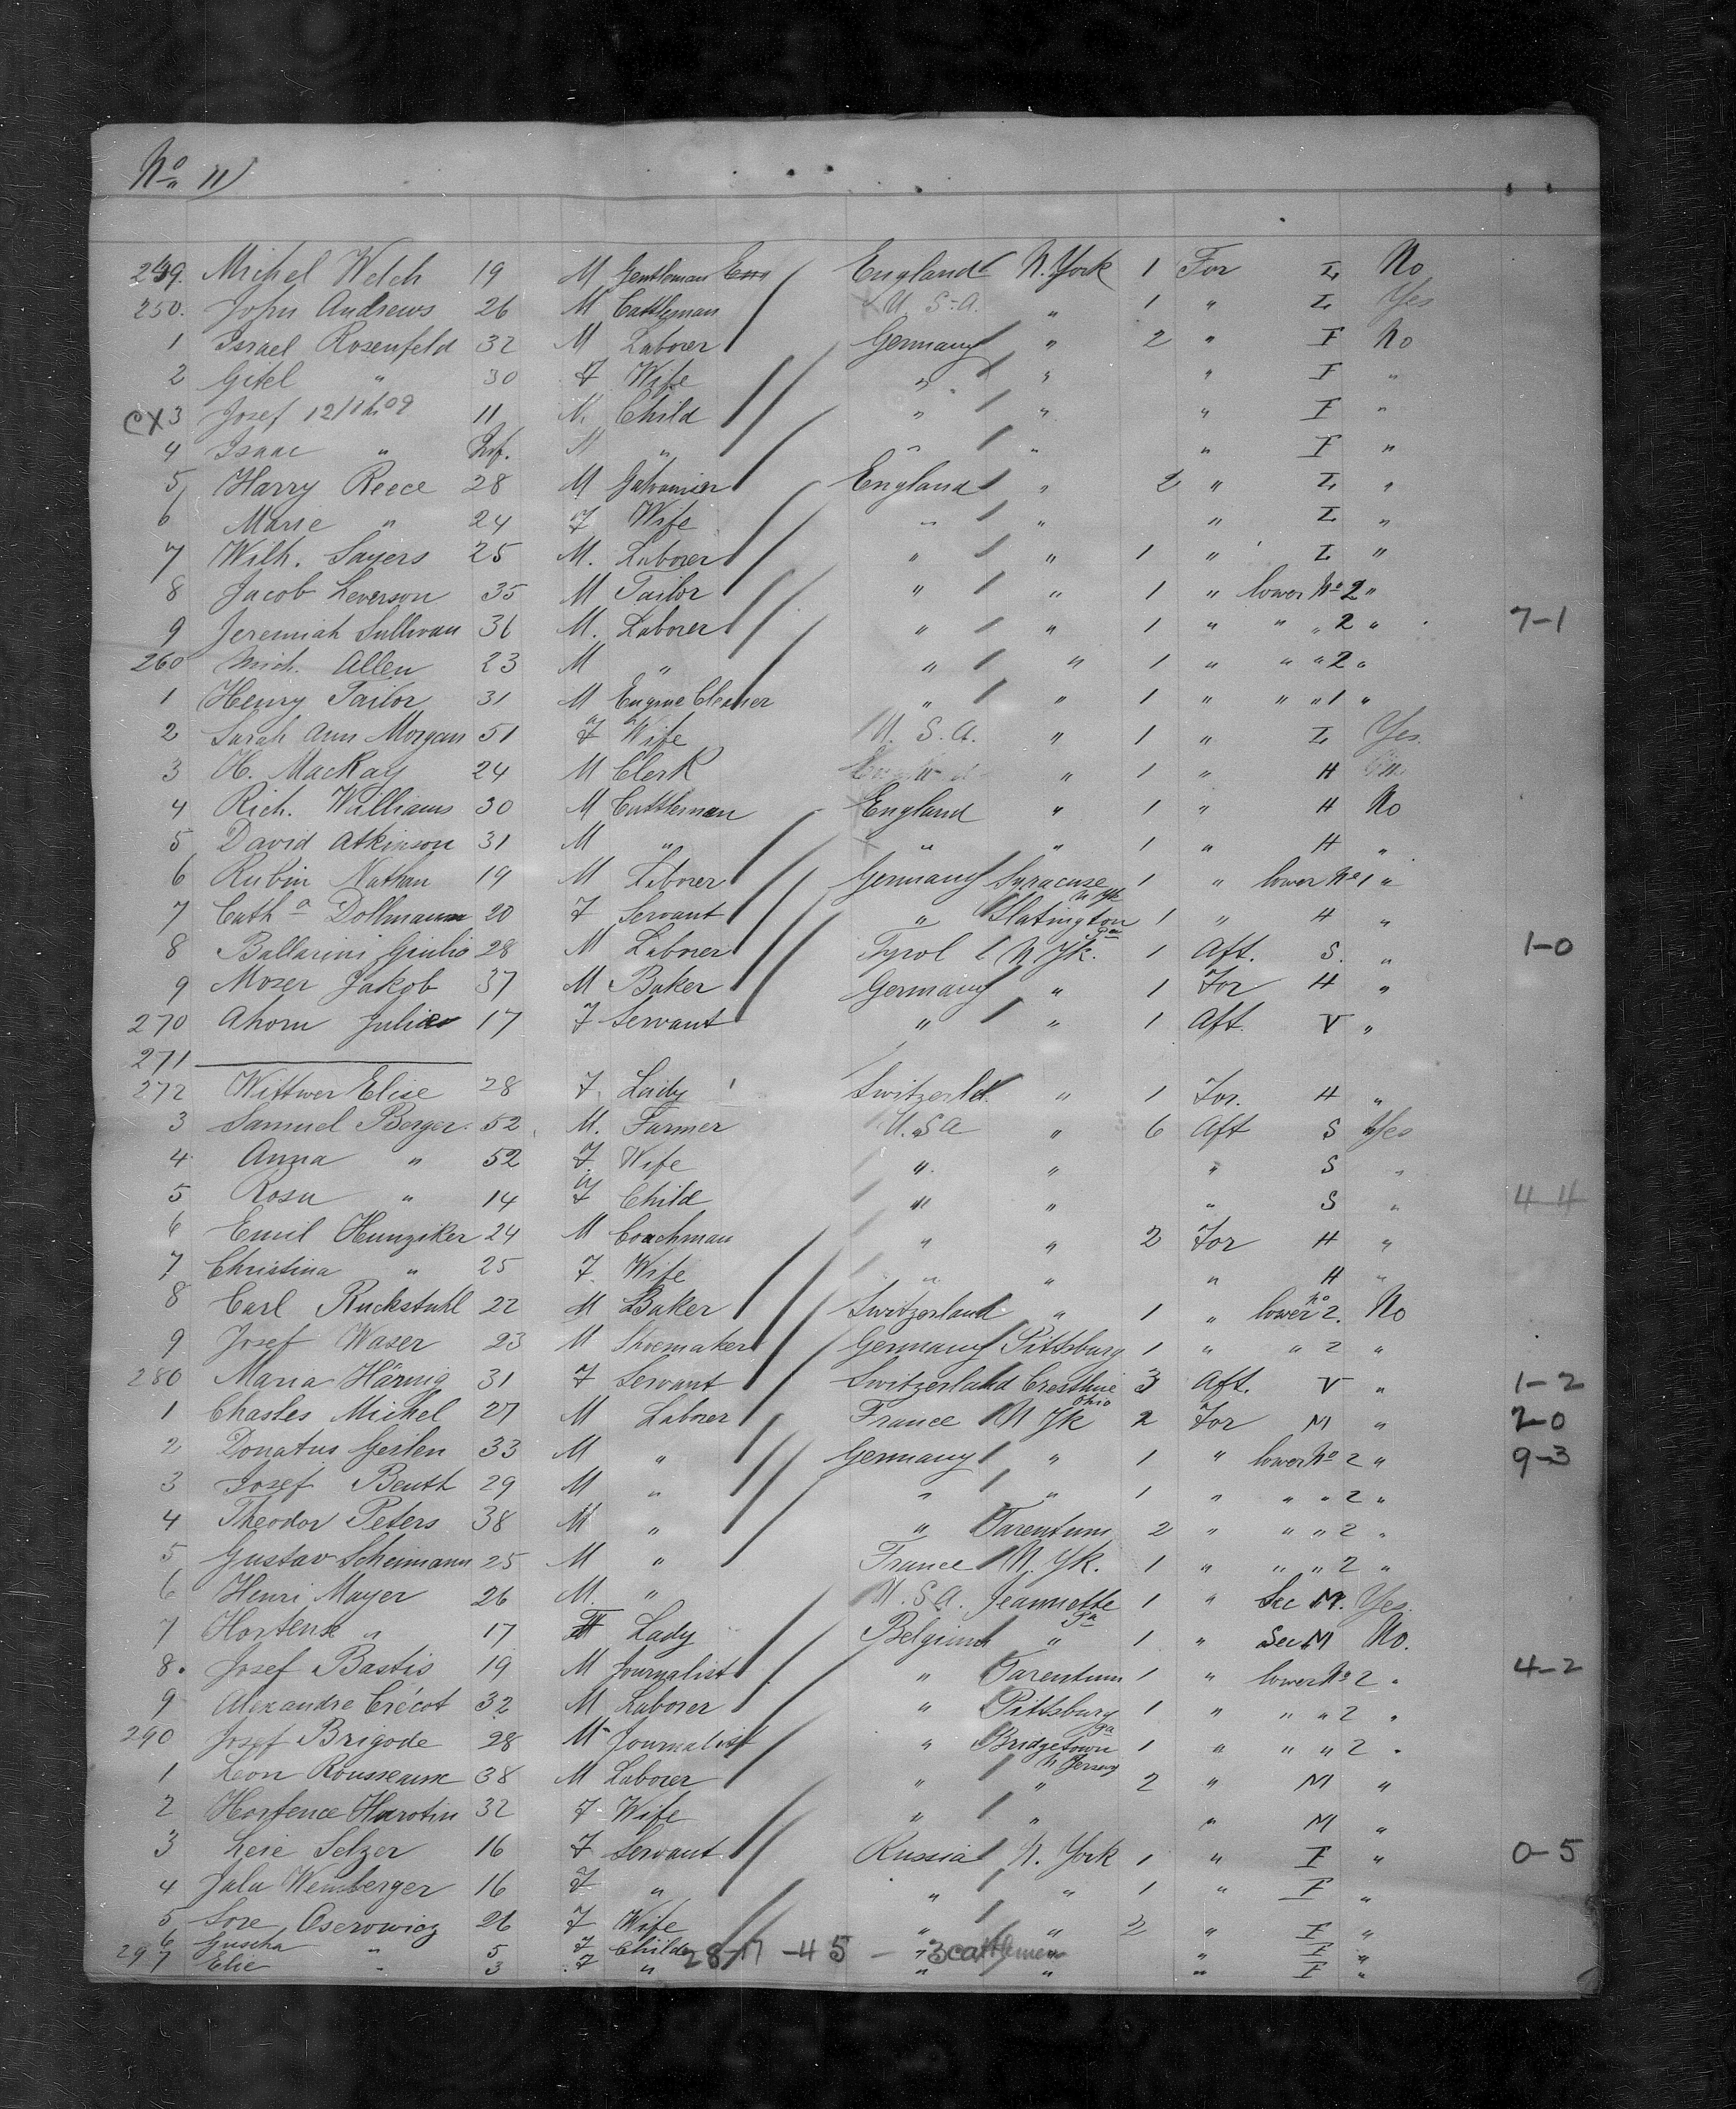 No 11)
249. Michel Welch 19 M Gentleman England N. York 1 For L No
250. John Andrews 26 M Cattleman U. S. A. " 1 " L Yes
1 Israel Rosenfeld 32 M Laborer Germany " 2 " I No
2 Gitel " 30 F Wife " " " I "
CX 3 Josef 11 M. Child " " " I "
4 Isaac " Inf. M " " " " I "
5 Harry Reece 28 M England " 2 " L "
6 Marie " 24 F Wife " " " L "
7 Wilh. Sayers 25 M. Laborer " " 1 " L "
8 Jacob Leverson 35 M Tailor " " 1 " lower No 2 "
9 Jeremiah Sullivan 36 M. Laborer " " 1 " " " 2 " 7-1
260 Mich. Allen 23 M " " " 1 " " " 2 "
1 Henry Tailor 31 M Engine Cleaner " " 1 " " " 1 "
2 Sarah Ann Morgan 51 F Wife U. S. A. " 1 " L Yes.
3 H. MacKay 24 M Clerk " 1 " H
4 Rich. Williams 30 M Cattleman England " 1 " H No
5 David Atkinson 31 M " " " 1 " H "
6 Rubin Nathan 19 M Laborer Germany Syracuse N Yk 1 " lower No 1 "
7 Cath a Dollmann 20 F Servant " Slatington Pa 1 " H "
8 Ballarini Giulio 28 M Laborer Tyrol N Yk. 1 Aft. S. " 1-0
9 Moser Jakob 37 M Baker Germany " 1 For H "
270 Ahorn 17 F Servant " " 1 Aft. V "
271
272 Wittwer Elise 28 F. Lady Switzerld. " 1 For. H "
3 Samuel Berger. 52 M. Farmer U.S.A " 6 Aft S Yes
4 Anna " 52 F. Wife " " " S "
5 Rosa " 14 F Child " " " S " 4-4
6 Emil Hunziker 24 M Coachman " " 2 For H "
7 Christina " 25 F. Wife " " " H "
8 Carl Ruckstuhl 22 M Baker Switzerland " 1 " lower No 2. No
9 Josef Waser 23 M Shoemaker Germany Pittsburg 1 " " 2 "
280 Maria Häring 31 F Servant Switzerland Crestline Ohio 3 Aft. V " 1-2
1 Chasles Michel 27 M Laborer France N Yk 2 For M " 2-0
2 Donatus Geilen 33 M " Germany " 1 " lower No 2 " 9-3
3 Josef Beuth 29 M " " " 1 " " " 2 "
4 Theodor Peters 38 M " " Tarentum 2 " " " 2 "
5 Gustav Scheimann 25 M " France N. Yk. 1 " " " 2 "
6 Henri Mayer 26 M. " U. S. A. Jeannette Pa 1 " Sec M. Yes.
7 Hortense " 17 F Lady Belgium " 1 " Sec M No.
8. Josef Bastis 19 M Journalist " Tarentum 1 " lower No 2 " 4-2
9 Alexandre Crécot 32 M Laborer " Pittsburg Pa 1 " " " 2 "
290 Josef Brigode 28 M Journalist " Bridgetown N Jersey 1 " " " 2 "
1 Leon Rousseaux 38 M Laborer " " 2 " M "
2 Hortence Harotin 32 F Wife " " " M "
3 Leie Selzer 16 F Servant Russia N. York 1 " I " 0-5
4 Jula Weinberger 16 F " " " 1 " I "
5 Sore Oserowicz 26 F Wife " " 2 " I "
6 Juscha " 5 F Child " " " I "
297 Elie " 3 F " " " " I "
28-17-45 - 3 cattlemen